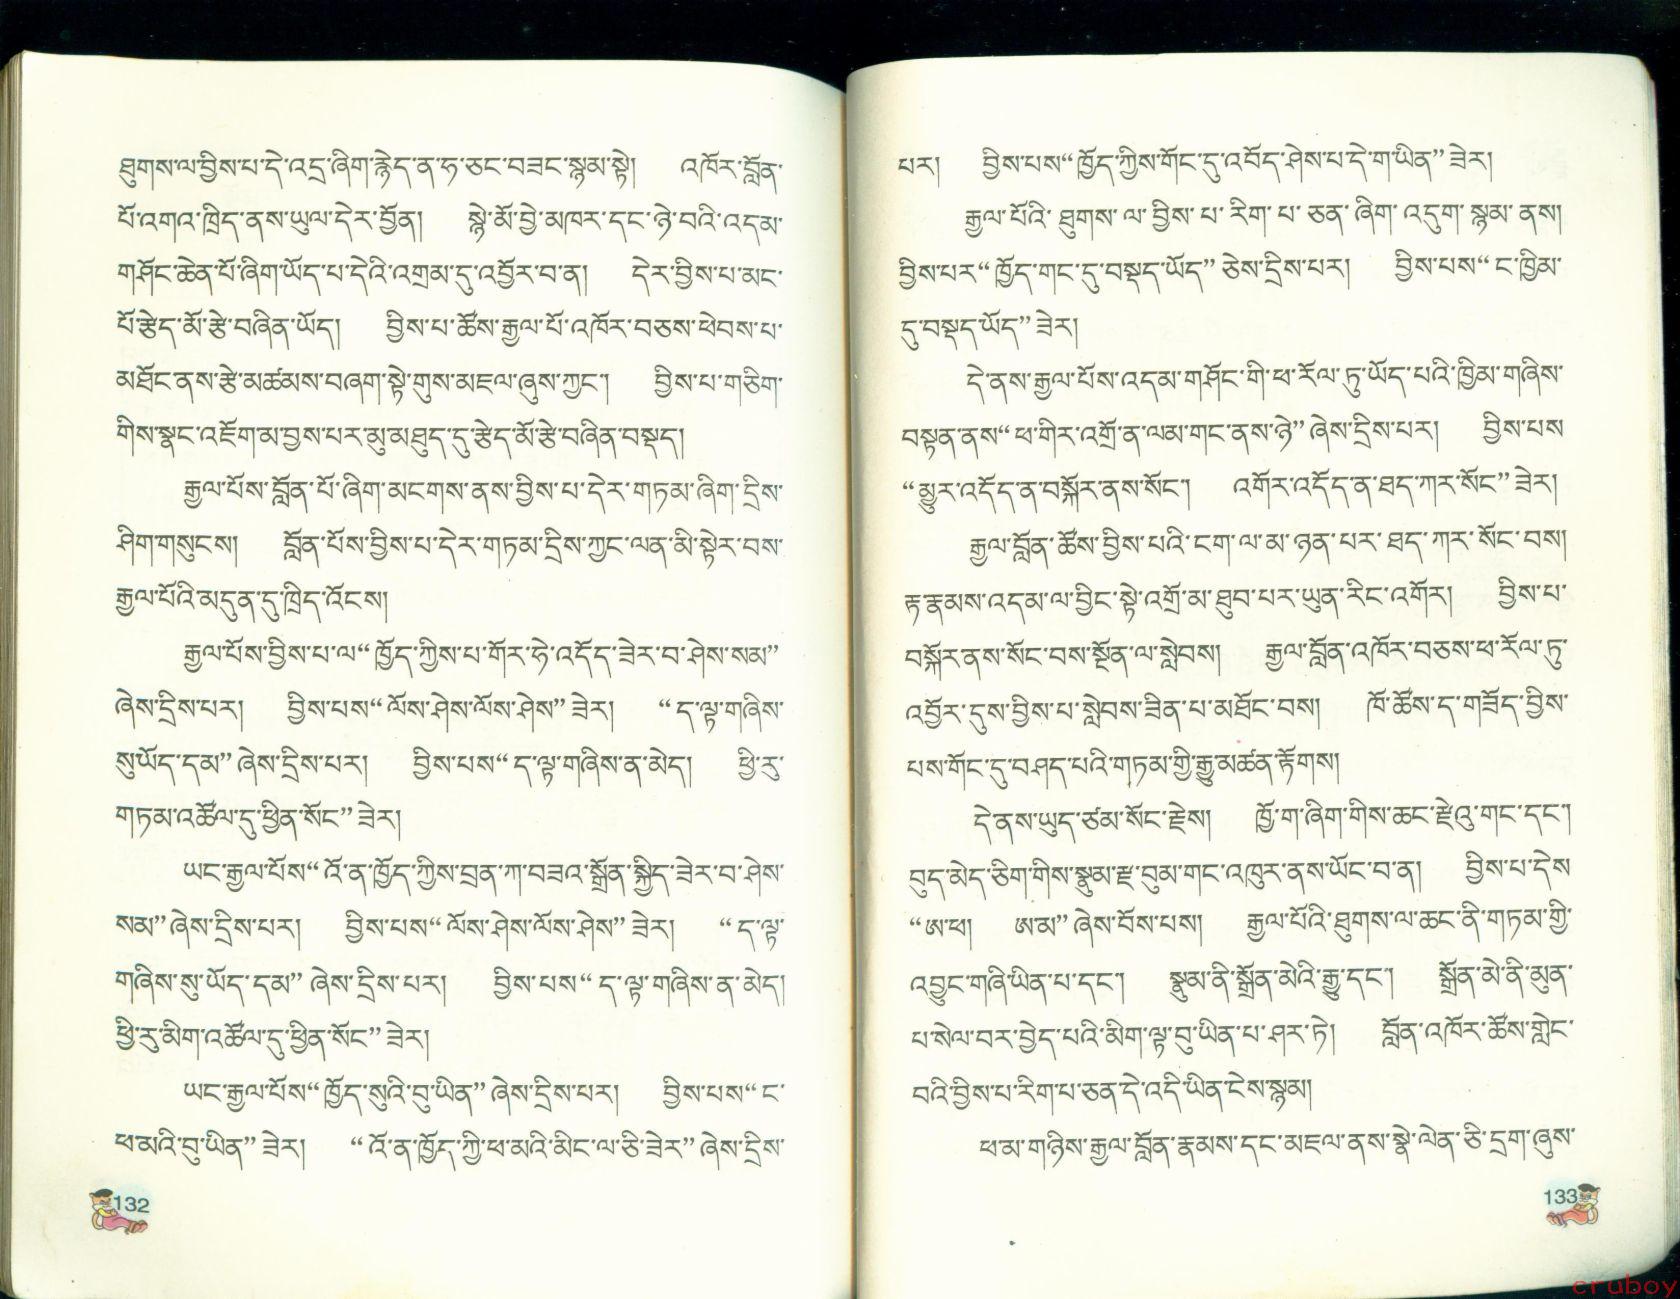 ཐུགས་ལ་བྱིས་པ་དེ་འདྲ་ཞིག་རྙེད་ན་ཧ་ཅང་བཟང་སྙམ་སྟེ། འཁོར་བློན་
པོ་འགའ་ཁྲིད་ནས་ཡུལ་དེར་བྱོན། སྙེ་མོ་བྱེ་མཁར་དང་ཉེ་བའི་འདམ་
གཤོང་ཆེན་པོ་ཞིག་ཡོད་པ་དེའི་འགྲམ་དུ་འབྱོར་བ་ན། དེར་བྱིས་པ་མང་
པོ་རྩེད་མོ་རྩེ་བཞིན་ཡོད། བྱིས་པ་ཚོས་རྒྱལ་པོ་འཁོར་བཅས་ཕེབས་པ་
མཐོང་ནས་རྩེ་མཚམས་བཞག་སྟེ་གུས་མཇལ་ཞུས་ཀྱང་། བྱིས་པ་གཅིག་
གིས་སྣང་འཇོག་མ་བྱས་པར་མུ་མཐུད་དུ་རྩེད་མོ་རྩེ་བཞིན་བསྡད།
རྒྱལ་པོས་བློན་པོ་ཞིག་མངགས་ནས་བྱིས་པ་དེར་གཏམ་ཞིག་དྲིས་
ཤིག་གསུངས། བློན་པོས་བྱིས་པ་དེར་གཏམ་དྲིས་ཀྱང་ལན་མི་སྟེར་བས་
རྒྱལ་པོའི་མདུན་དུ་ཁྲིད་འོངས།
རྒྱལ་པོས་བྱིས་པ་ལ“ཁྱོད་ཀྱིས་པ་གོར་ཧེ་འདོད་ཟེར་བ་ཤེས་སམ”
ཞེས་དྲིས་པར། བྱིས་པས“ལོས་ཤེས་ལོས་ཤེས”ཟེར། “ད་ལྟ་གཞིས་
སུ་ཡོད་དམ”ཞེས་དྲིས་པར། བྱིས་པས“ད་ལྟ་གཞིས་ན་མེད། ཕྱི་རུ་
གཏམ་འཚོལ་དུ་ཕྱིན་སོང”ཟེར།
ཡང་རྒྱལ་པོས“འོ་ན་ཁྱོད་ཀྱིས་བྲན་ཀ་བཟའ་སྒྲོན་སྐྱིད་ཟེར་བ་ཤེས་
སམ”ཞེས་དྲིས་པར། བྱིས་པས“ལོས་ཤེས་ལོས་ཤེས”ཟེར། “ད་ལྟ་
གཞིས་སུ་ཡོད་དམ”ཞེས་དྲིས་པར། བྱིས་པས“ད་ལྟ་གཞིས་ན་མེད།
ཕྱི་རུ་མིག་འཚོལ་དུ་ཕྱིན་སོང”ཟེར།
ཡང་རྒྱལ་པོས“ཁྱོད་སུའི་བུ་ཡིན”ཞེས་དྲིས་པར། བྱིས་པས“ང་
ཕ་མའི་བུ་ཡིན”ཟེར། “འོ་ན་ཁྱོད་ཀྱི་ཕ་མའི་མིང་ལ་ཅི་ཟེར”ཞེས་དྲིས་
132
པར། བྱིས་པས“ཁྱོད་ཀྱིས་གོང་དུ་འབོད་ཤེས་པ་དེ་ག་ཡིན”ཟེར།
རྒྱལ་པོའི་ཐུགས་ལ་བྱིས་པ་རིག་པ་ཅན་ཞིག་འདུག་སྙམ་ནས།
བྱིས་པར“ཁྱོད་གང་དུ་བསྡད་ཡོད”ཅེས་དྲིས་པར། བྱིས་པས“ང་ཁྱིམ་
དུ་བསྡད་ཡོད”ཟེར།
དེ་ནས་རྒྱལ་པོས་འདམ་གཤོང་གི་ཕ་རོལ་ཏུ་ཡོད་པའི་ཁྱིམ་གཞིས་
བསྟན་ནས“ཕ་གིར་འགྲོ་ན་ལམ་གང་ནས་ཉེ”ཞེས་དྲིས་པར། བྱིས་པས
“མྱུར་འདོད་ན་བསྐོར་ནས་སོང་། འགོར་འདོད་ན་ཐད་ཀར་སོང”ཟེར།
རྒྱལ་བློན་ཚོས་བྱིས་པའི་ངག་ལ་མ་ཉན་པར་ཐད་ཀར་སོང་བས།
རྟ་རྣམས་འདམ་ལ་བྱིང་སྟེ་འགྲོ་མ་ཐུབ་པར་ཡུན་རིང་འགོར། བྱིས་པ་
བསྐོར་ནས་སོང་བས་སྔོན་ལ་སླེབས། རྒྱལ་བློན་འཁོར་བཅས་ཕ་རོལ་ཏུ་
འབྱོར་དུས་བྱིས་པ་སླེབས་ཟིན་པ་མཐོང་བས། ཁོ་ཚོས་ད་གཟོད་བྱིས་
པས་གོང་དུ་བཤད་པའི་གཏམ་གྱི་རྒྱུ་མཚན་རྟོགས།
དེ་ནས་ཡུད་ཙམ་སོང་རྗེས། ཁྱོ་ག་ཞིག་གིས་ཆང་རྫེའུ་གང་དང་།
བུད་མེད་ཅིག་གིས་སྣུམ་རྫ་བུམ་གང་འཁུར་ནས་ཡོང་བ་ན། བྱིས་པ་དེས
“ཨ་ཕ། ཨ་མ”ཞེས་བོས་པས། རྒྱལ་པོའི་ཐུགས་ལ་ཆང་ནི་གཏམ་གྱི་
འབྱུང་གཞི་ཡིན་པ་དང་། སྣུམ་ནི་སྒྲོན་མེའི་རྒྱུ་དང་། སྒྲོན་མེ་ནི་མུན་
པ་སེལ་བར་བྱེད་པའི་མིག་ལྟ་བུ་ཡིན་པ་ཤར་ཏེ། བློན་འཁོར་ཚོས་གླེང་
བའི་བྱིས་པ་རིག་པ་ཅན་དེ་འདི་ཡིན་ངེས་སྙམ།
ཕ་མ་གཉིས་རྒྱལ་བློན་རྣམས་དང་མཇལ་ནས་སྣེ་ལེན་ཅི་དྲག་ཞུས་
133
cruboy